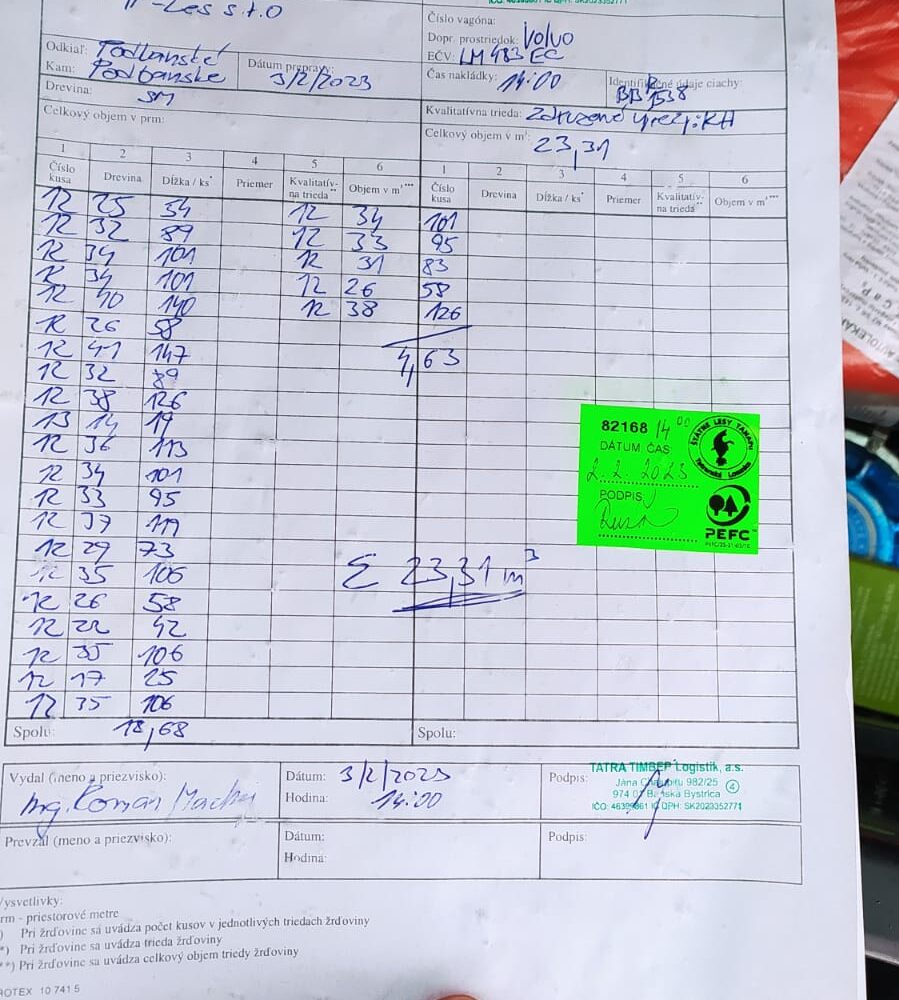 -Les s.r.o
Číslo vagóna:
Dopr. prostriedok: Volvo
EČV: LM 483 EC
Odkiaľ: Podbanské
Kam: Podbanske
Dátum prepravy: 3/2/2023
Čas nakládky: 14:00
Identifikačné údaje ciachy: BB 1538
Drevina: SM
Kvalitatívna trieda:
Celkový objem v prm:
Celkový objem v m³: 23,31
1 2 3 4 5 6 1 2 3 4 5 6
Číslo kusa Drevina Dĺžka / ks* Priemer Kvalitatív-na trieda** Objem v m³*** Číslo kusa Drevina Dĺžka / ks* Priemer Kvalitatív-na trieda** Objem v m³***
12 25 34 12 34 101
12 32 89 12 33 95
12 34 101 12 31 83
12 34 101 12 26 58
12 40 140 12 38 126
12 26 58
12 41 147 4,63
12 32 89
12 38 126
13 14 19
12 36 113
12 34 101
12 33 95
12 37 119
12 29 73
12 35 106
12 26 58
12 22 42
12 35 106
12 17 25
12 35 106
Σ 23,31 m³
82168 14 00
DÁTUM ČAS
2.2.2023
PODPIS
ŠTÁTNE LESY TANAPu
Tatranská Lomnica
PEFC
Spolu: 18,68
Spolu:
Vydal (meno a priezvisko): Ing. Roman
Dátum: 3/2/2023
Hodina: 14:00
Podpis:
TATRA TIMBER Logistik, a.s.
982/25
Banská Bystrica
4
DPH: SK2023352771
Prevzal (meno a priezvisko):
Dátum:
Hodina:
Podpis:
Vysvetlivky:
rm - priestorové metre
) Pri žrďovine sa uvádza počet kusov v jednotlivých triedach žrďoviny
*) Pri žrďovine sa uvádza trieda žrďoviny
**) Pri žrďovine sa uvádza celkový objem triedy žrďoviny
ROTEX 10 741 5